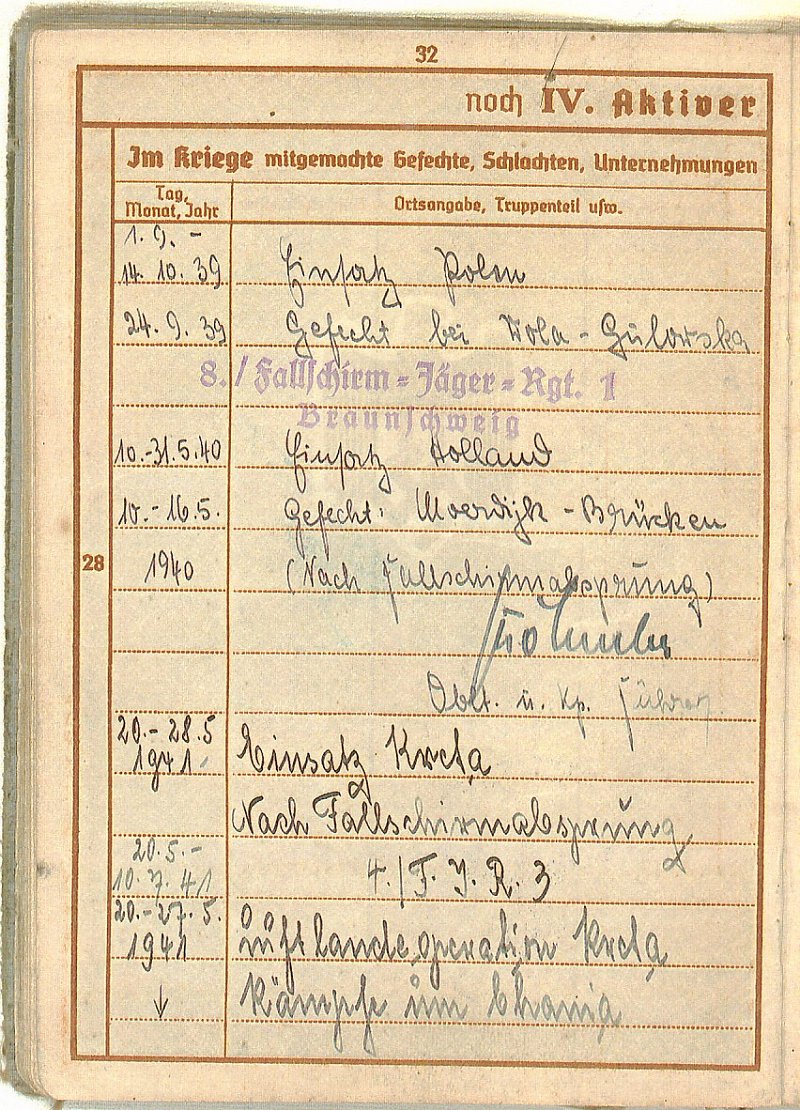 32
noch IV. Aktiver
Im Kriege mitgemachte Gefechte, Schlachten, Unternehmungen
Tag, Monat, Jahr
Ortsangabe, Truppenteil usw.
1. 9. -
14. 10. 39 Einsatz Polen
24. 9. 39 Gefecht bei Wola - Gulowska
8./Fallschirm-Jäger-Rgt. 1
Braunschweig
10.-31.5.40 Einsatz Holland
10.-16.5. Gefecht: Moerdijk - Brücken
28
1940 (Nach Fallschirmabsprung)
Oblt. u. Kp. Führer
20.- 28.5
1941 Einsatz Kreta
Nach Fallschirmabsprung
20.5.-
10.7.41 4./F.J.R. 3
20.-27.5.
1941 Luftlandeoperation Kreta
↓ Kämpfe um Chania